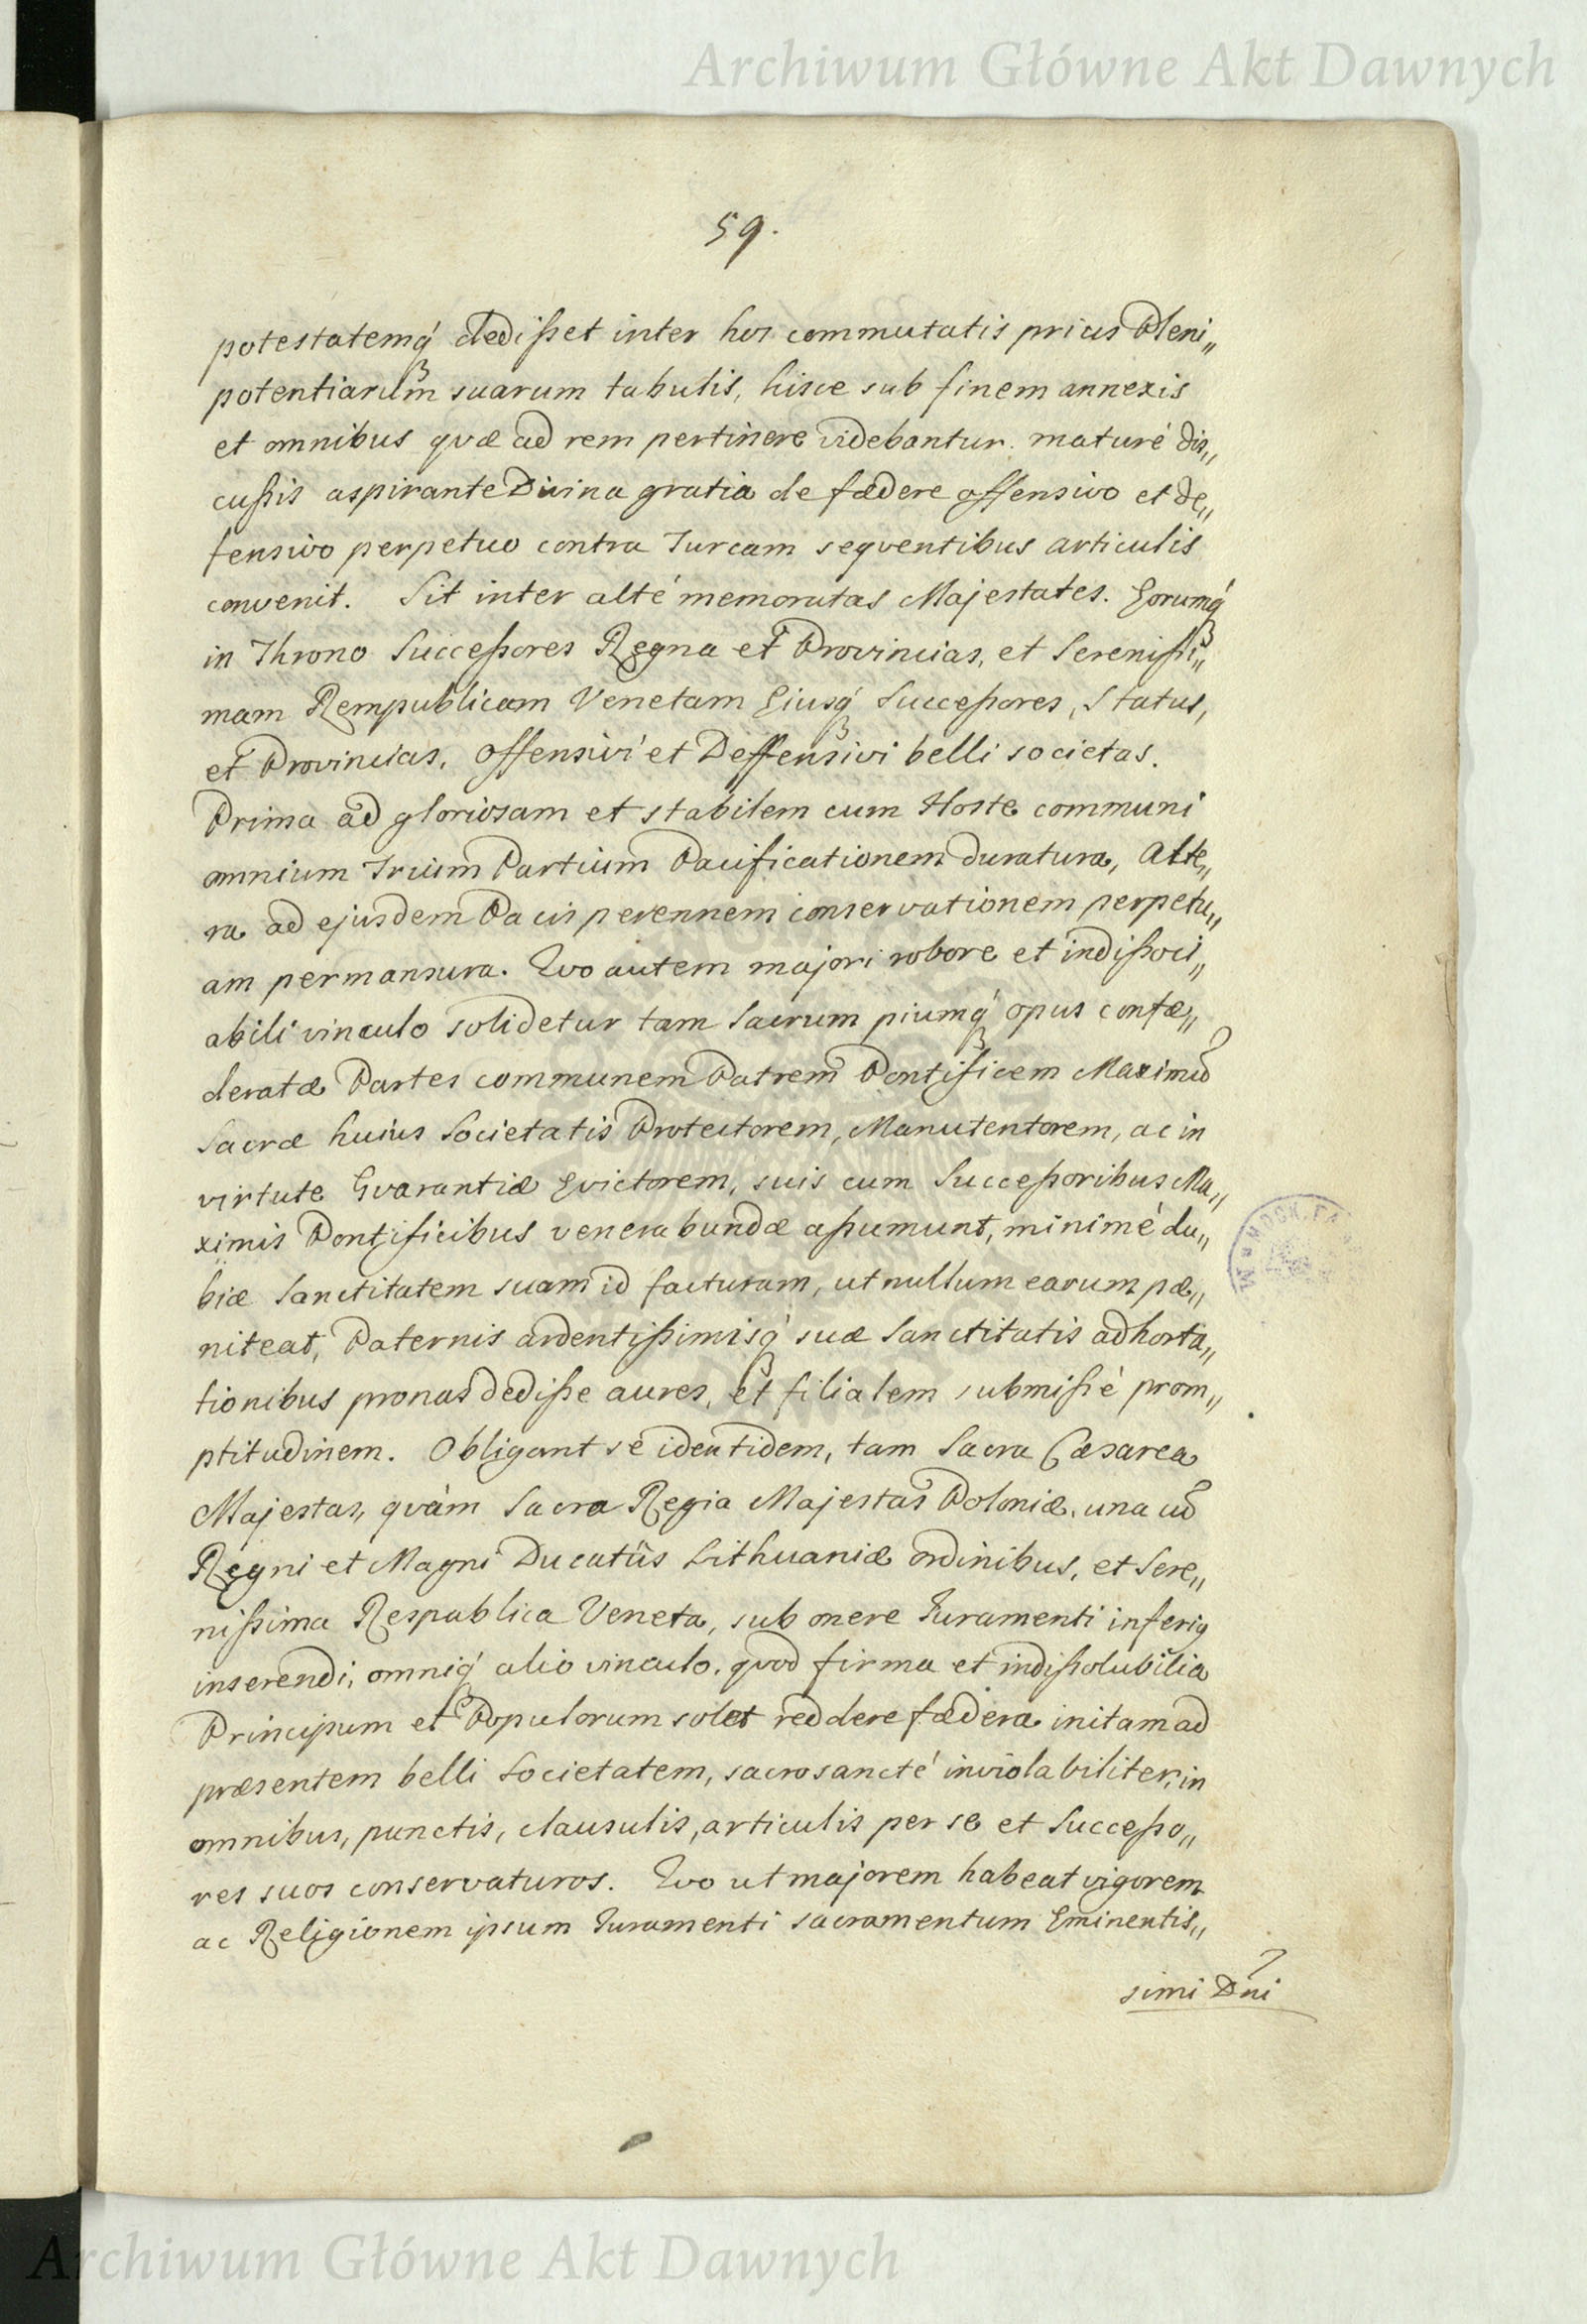 Archiwum Główne Akt Dawnych
59.
potestatemq́ dedißet inter hos commutatis prius Pleni„
potentiarum suarum tabulis, hisce sub finem annexis
et omnibus qvæ ad rem pertinere videbantur. maturé dis„
cußis aspirante Divina gratia de fædere offensivo et de„
fensivo perpetuo contra Turcam seqventibus articulis
convenit. Sit inter alté memoratas Majestates. Eorumq́
in Throno Succeßores Regna et Provincias, et Serenißi„
mam Rempublicam Venetam Ejusq́ Succeßores, Status,
et Provincias, offensivi et Deffensivi belli societas.
Prima ad gloriosam et stabilem cum Hoste communi
omnium Trium Partium Pacificationem duratura, Alte„
ra ad ejusdem Pacis perennem conservationem perpetu„
am permansura. Qvo autem majori robore et indißoci„
abili vinculo solidetur tam Sacrum piumq́ opus confæ„
deratæ Partes communem Patrem Pontificem Maximũ
Sacræ huius Societatis Protectorem, Manutentorem, ac in
virtute Gvarantiæ Evictorem, suis cum Succeßoribus Ma„
ximis Pontificibus venerabundæ aßumunt, minimé du„
biæ Sanctitatem suam id facturam, ut nullum earum pæ„
niteat, Paternis ardentißimisq́ suæ Sanctitatis adhorta„
tionibus pronas dediße aures, et filialem submißè prom„
ptitudinem. Obligant se identidem, tam Sacra Cæsarea
Majestas, qvàm Sacra Regia Majestas Poloniæ, una cũ
Regni et Magni Ducatûs Lithuaniæ ordinibus, et Sere„
nißima Respublica Veneta, sub onere Juramenti inferig
inserendi, omniq́ alio vinculo, qvod firma et indißolubilia
Principum et Populorum solet reddere fædera initam ad
præsentem belli Societatem, sacrosancté inviolabiliter, in
omnibus, punctis, clausulis, articulis per se et Succeßo„
res suos conservaturos. Qvo ut majorem habeat vigorem
ac Religionem ipsum Juramenti sacramentum Eminentis„
simi Dñi
Archiwum Główne Akt Dawnych